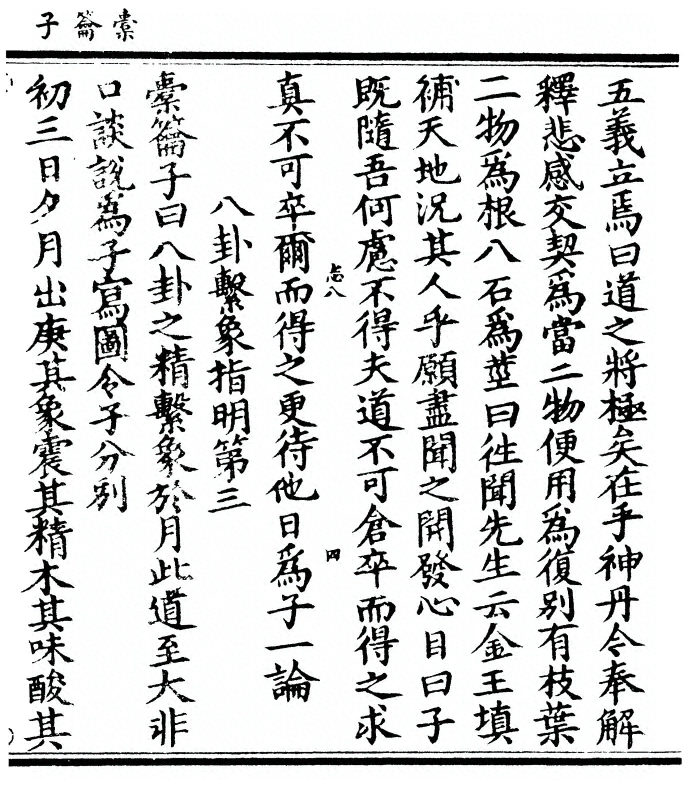 槖籥子
五義立焉曰道之將極矣在乎神丹今奉解
釋悲感交契爲當二物便用爲復別有枝葉
二物爲根八石爲莖曰徃聞先生云金玉填
補天地况其人乎願盡聞之開發心目曰子
既隨吾何慮不得夫道不可倉卒而得之求
忠八
四
真不可卒爾而得之更待他日爲子一論
八卦繫象指明第三
槖籥子曰八卦之精繫象於月此道至大非
口談說爲子寫圖令子分別
初三日夕月出庚其象震其精木其味酸其